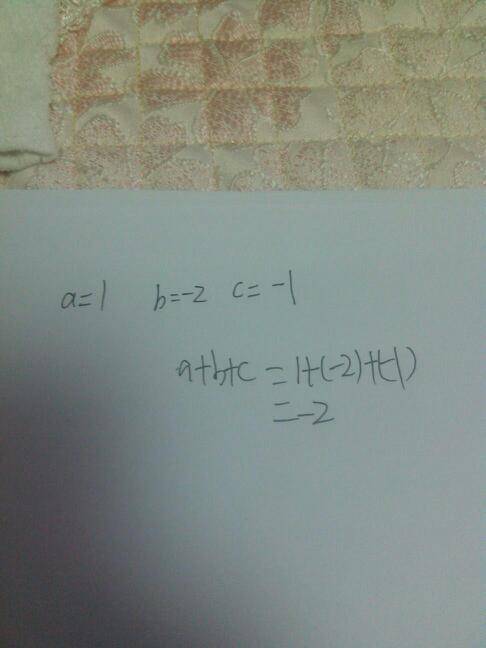 a=1 b=-2 c=-1
a+b+c =1+(-2)+(-1)
=-2